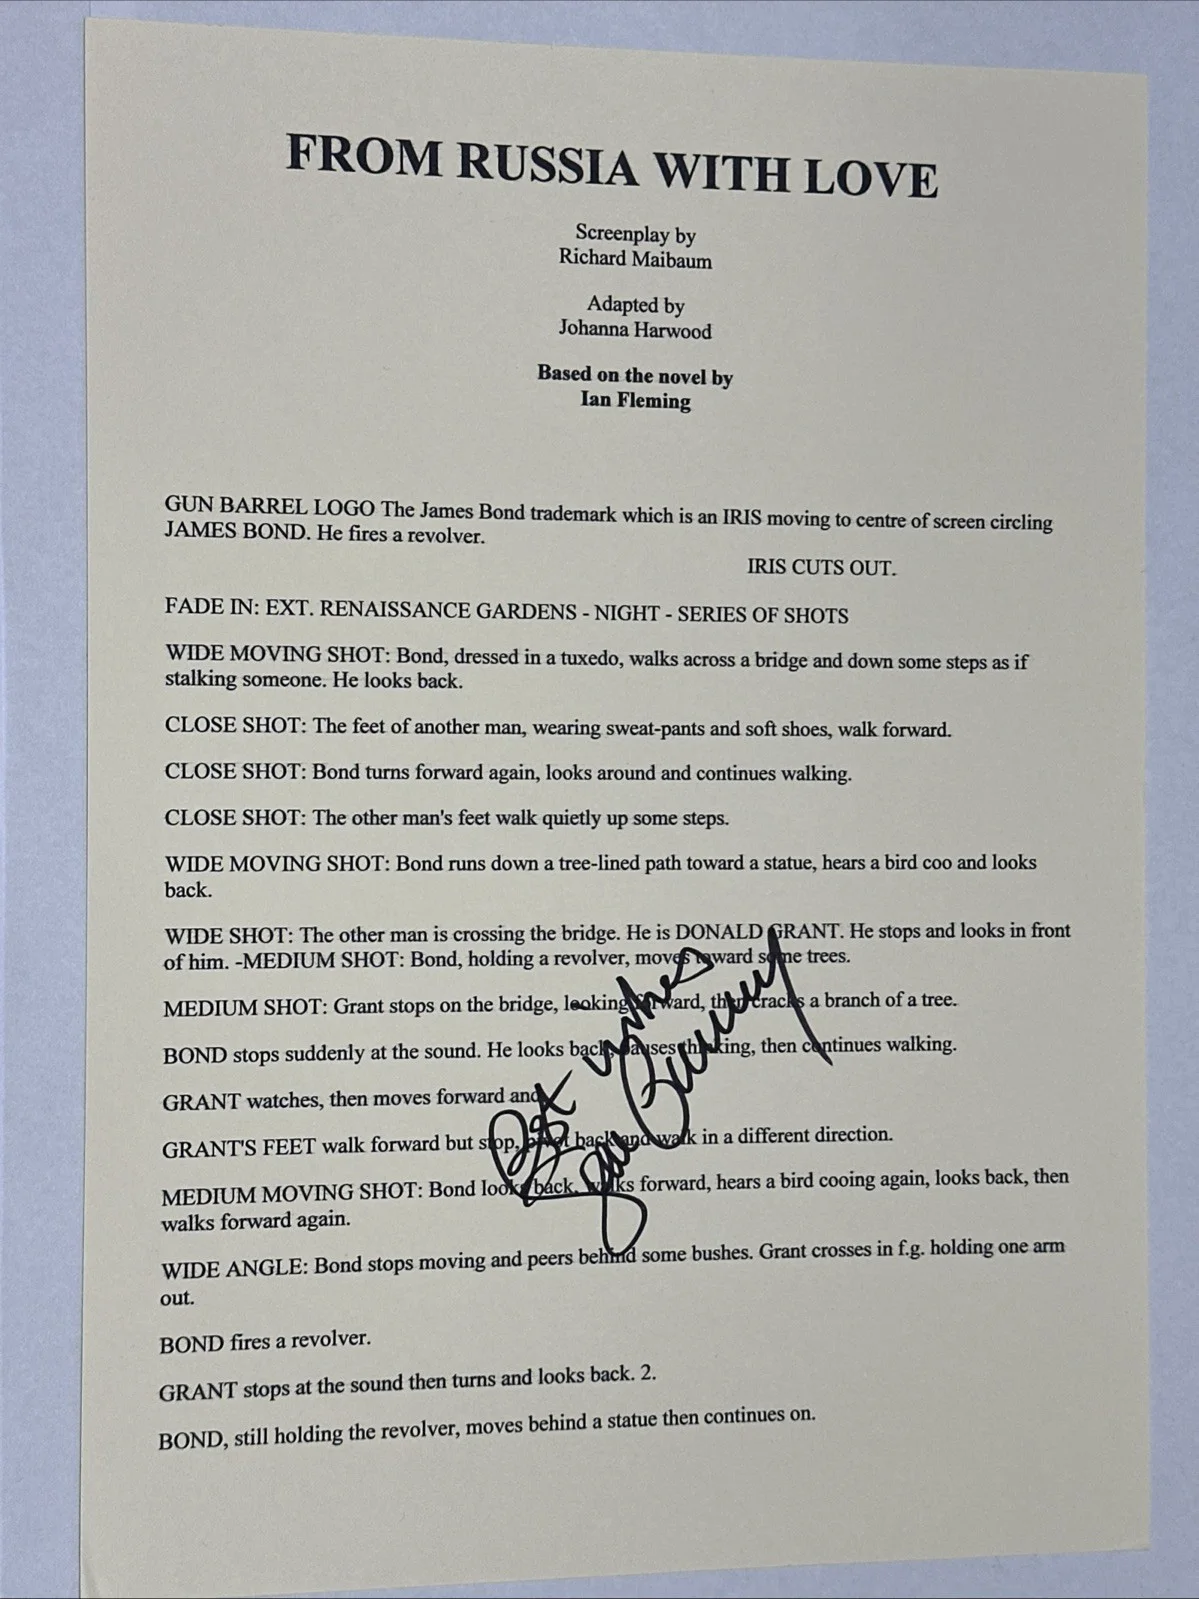 FROM RUSSIA WITH LOVE
Screenplay by
Richard Maibaum
Adapted by
Johanna Harwood
Based on the novel by
Ian Fleming
GUN BARREL LOGO The James Bond trademark which is an IRIS moving to centre of screen circling
JAMES BOND. He fires a revolver.
IRIS CUTS OUT.
FADE IN: EXT. RENAISSANCE GARDENS - NIGHT - SERIES OF SHOTS
WIDE MOVING SHOT: Bond, dressed in a tuxedo, walks across a bridge and down some steps as if
stalking someone. He looks back.
CLOSE SHOT: The feet of another man, wearing sweat-pants and soft shoes, walk forward.
CLOSE SHOT: Bond turns forward again, looks around and continues walking.
CLOSE SHOT: The other man's feet walk quietly up some steps.
WIDE MOVING SHOT: Bond runs down a tree-lined path toward a statue, hears a bird coo and looks
back.
WIDE SHOT: The other man is crossing the bridge. He is DONALD GRANT. He stops and looks in front
of him. -MEDIUM SHOT: Bond, holding a revolver, moves toward some trees.
MEDIUM SHOT: Grant stops on the bridge, looking forward, then cracks a branch of a tree.
BOND stops suddenly at the sound. He looks back, pauses thinking, then continues walking.
GRANT watches, then moves forward and
GRANT'S FEET walk forward but stop, pivot back and walk in a different direction.
MEDIUM MOVING SHOT: Bond looks back, walks forward, hears a bird cooing again, looks back, then
walks forward again.
WIDE ANGLE: Bond stops moving and peers behind some bushes. Grant crosses in f.g. holding one arm
out.
BOND fires a revolver.
GRANT stops at the sound then turns and looks back. 2.
BOND, still holding the revolver, moves behind a statue then continues on.
Best wishes